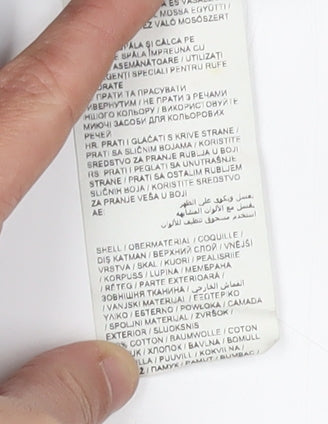 MOSSA EGYÜTT /
VALÓ MOSÓSZERT
SPĂLA ȘI CĂLCA PE
SPĂLA ÎMPREUNĂ CU
ASEMĂNĂTOARE / UTILIZAȚI
SPECIALI PENTRU RUFE
ПРАТИ ТА ПРАСУВАТИ
НЕ ПРАТИ З РЕЧАМИ
КОЛЬОРУ / ВИКОРИСТОВУЙТЕ
МИЮЧІ ЗАСОБИ ДЛЯ КОЛЬОРОВИХ
РЕЧЕЙ
HR. PRATI I GLAČATI S KRIVE STRANE /
PRATI SA SLIČNIM BOJAMA / KORISTITE
SREDSTVO ZA PRANJE RUBLJA U BOJI
RS. PRATI I PEGLATI SA UNUTRAŠNJE
STRANE / PRATI SA OSTALIM RUBLJEM
SLIČNIH BOJA / KORISTITE SREDSTVO
ZA PRANJE VEŠA U BOJI
AE:
يغسل ويكوى على الظهر
يغسل مع الألوان المشابهة
استخدم مسحوق تنظيف للألوان
SHELL / OBERMATERIAL / COQUILLE /
DIŞ KATMAN / ВЕРХНИЙ СЛОЙ / VNĚJŠÍ
VRSTVA / SKAL / KUORI /
/ KORPUSS / LUPINA / МЕМБРАНА
/ RETEG / PARTE EXTERIOARĂ /
ЗОВНІШНЯ ТКАНИНА / القماش الخارجي
/ VANJSKI MATERIJAL / ΕΞΩΤΕΡΙΚΟ
ΥΛΙΚΟ / ESTERNO / POWŁOKA / CAMADA
/ SPOLJNI MATERIJAL / ZVRŠOK /
EXTERIOR / SLUOKSNIS
COTTON / BAUMWOLLE / COTON
/ ХЛОПОК / BAVLNA / BOMULL
/ PUUVILL / KOKVILNA /
/ ПАМУК / PAMUT / BUMBAC /